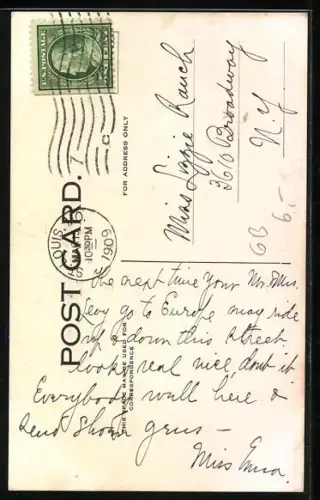 U.S. POSTAGE
ONE CENT
ST. LOUIS, MO.
10-30PM
1909
7
C
POST CARD.
FOR ADDRESS ONLY
THIS SPACE MAY BE USED FOR
CORRESPONDENCE
Miss Lizzie Rauch
3610 Broadway
N.Y.
GB
6.-
The next time your Mr. & Mrs.
Levy go to Europe may ride
up & down this street.
Looks real nice, dont it
Everybody well here &
send
Miss Emma.